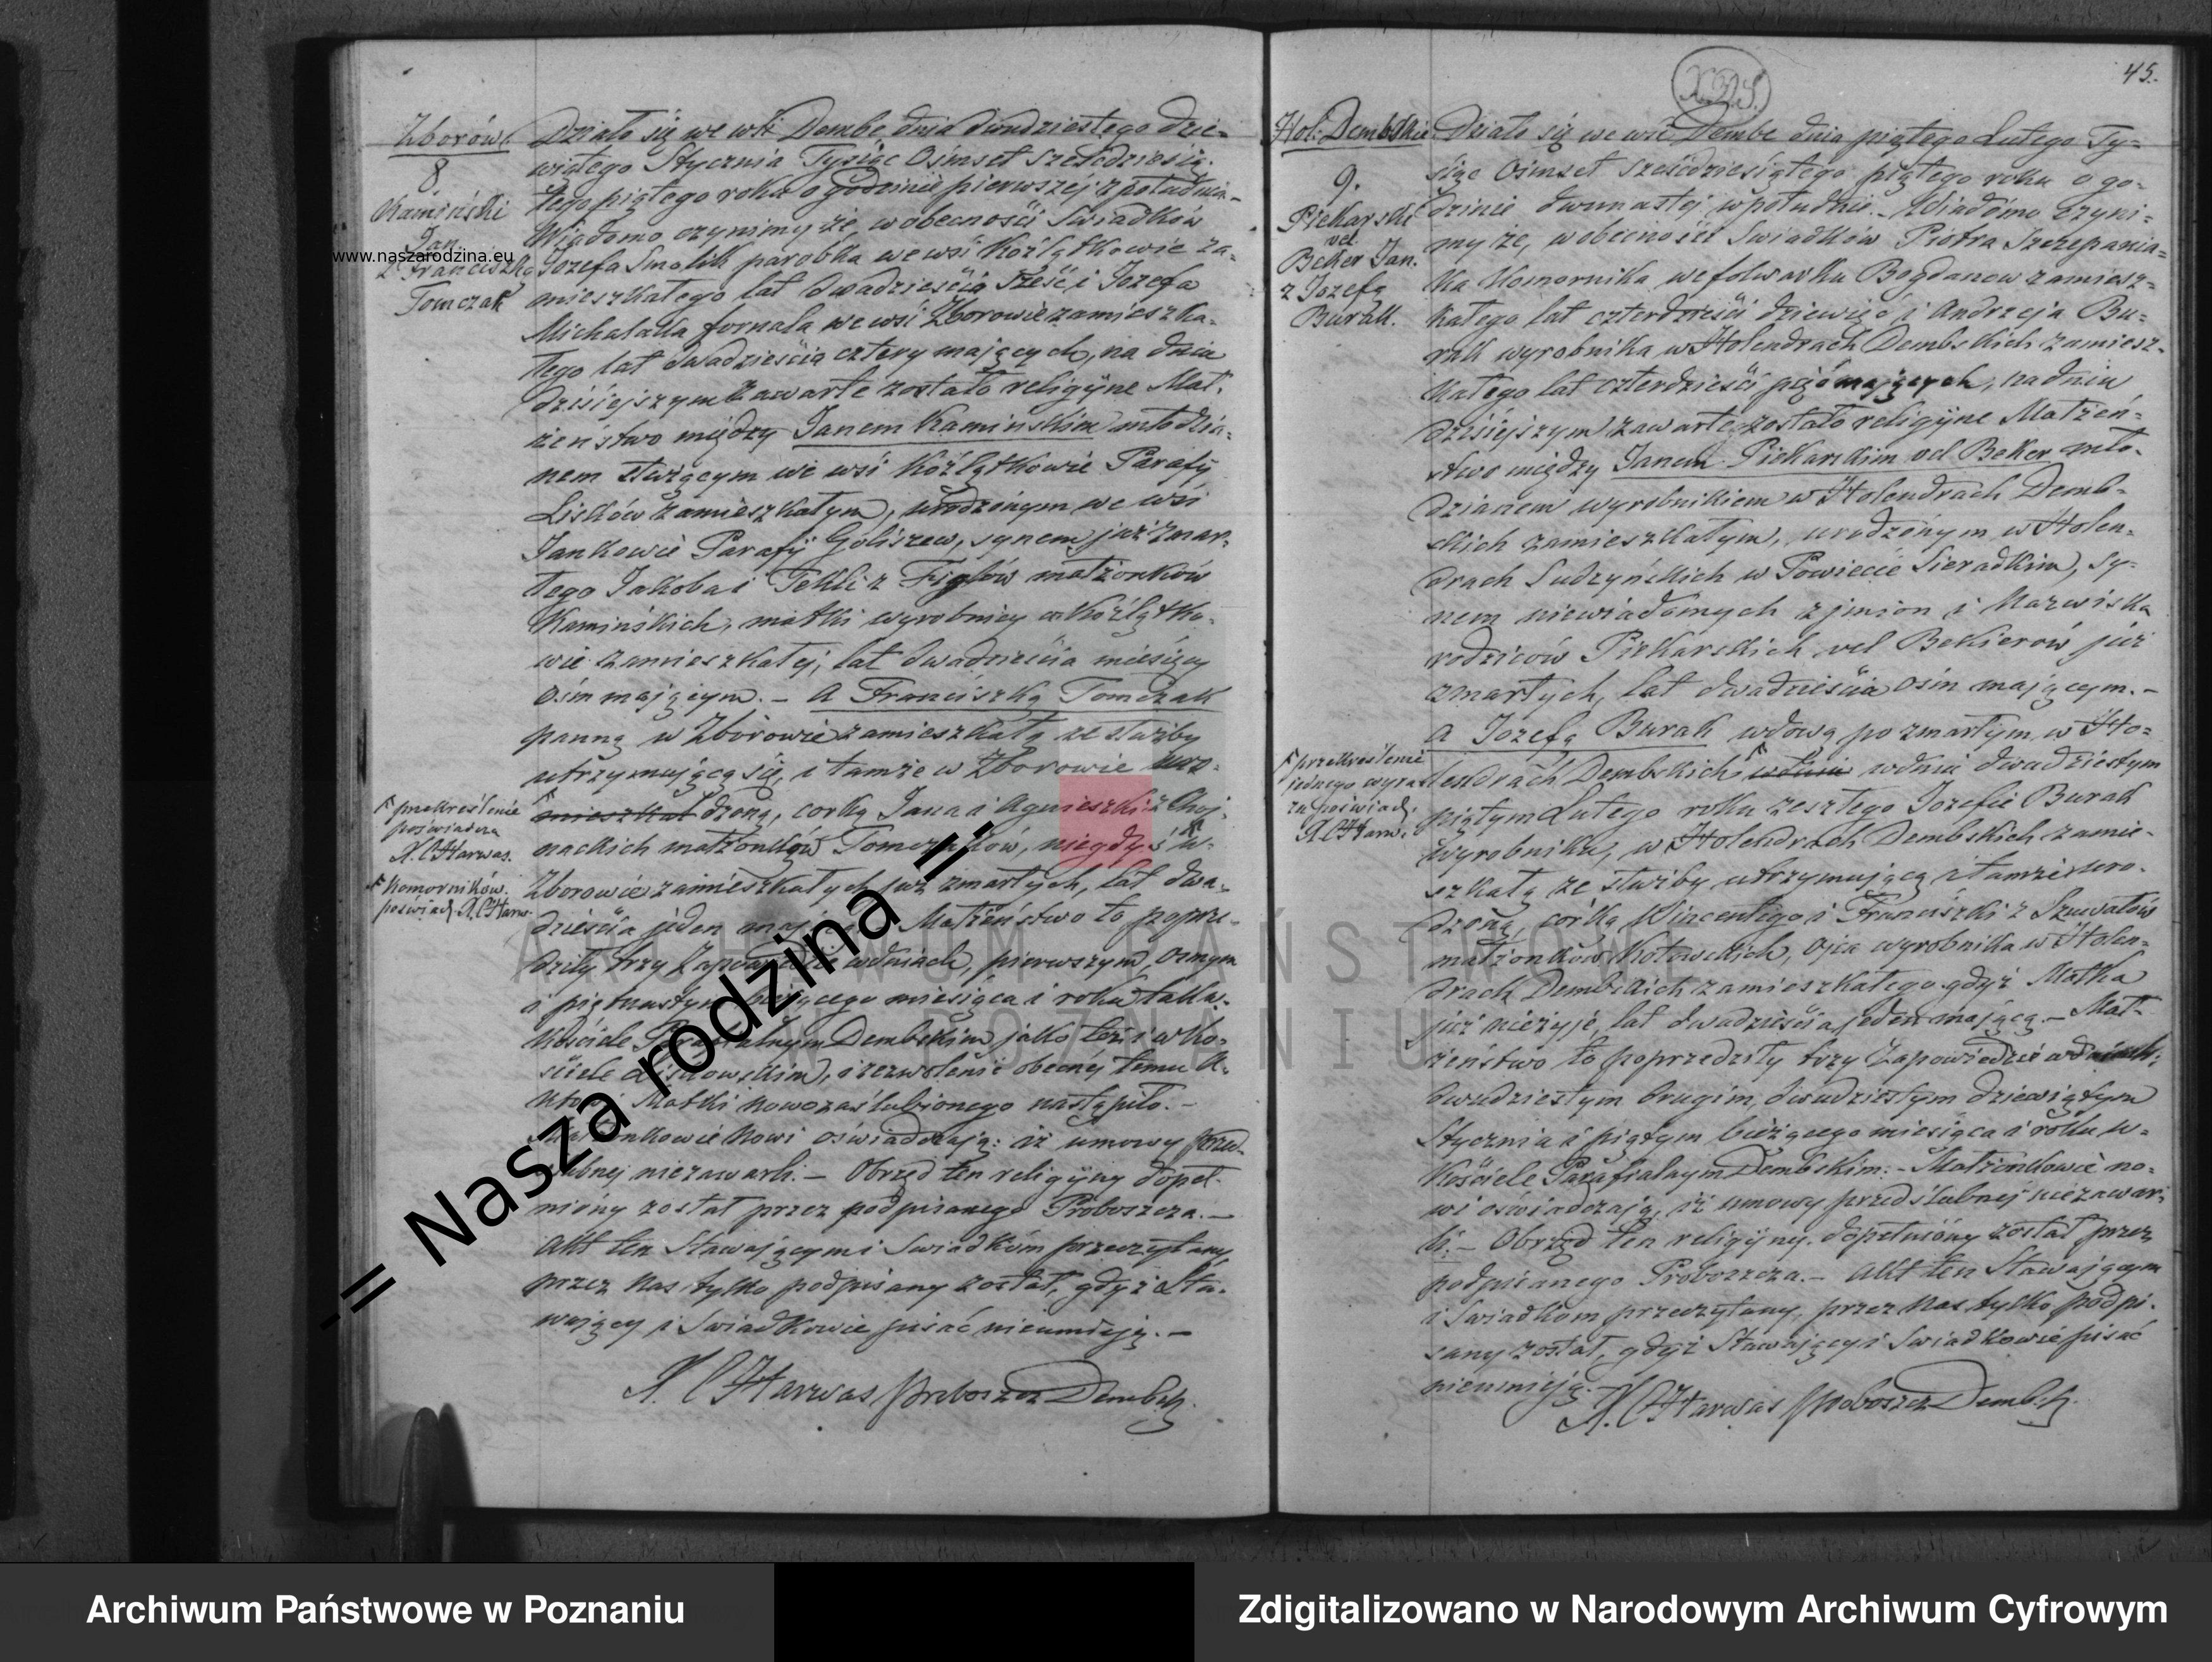 Zborów.
8
Kamiński
Jan
z Franciszką
Tomczak
Działo się we wsi Dembe dnia dwudziestego dzie=
wiątego Stycznia Tysiąc Ośmset sześćdziesią-
tego piątego roku o godzinie pierwszéj z południa.-
Wiadomo czynimy że, w obecności Swiadków
Jozefa Smolik parobka we wsi Koźlątkowie za-
mieszkałego lat dwadzieścia sześć i Jozefa
Michalaka fornala we wsi Zborowie zamieszka-
łego lat dwadzieścia cztery mających, na dniu
dzisiejszym zawarte zostało religijne Mał-
żeństwo między Janem Kamińskim młodzia-
nem służącym we wsi Koźlątkowie Parafÿ
Lisków zamieszkałym, urodzonym we wsi
Jankowie Parafÿ Goliszew, synem już zmar-
łego Jakoba i Tekli z Figlów małżonków
Kamińskich, matki wyrobnicy w Koźlątko-
wie zamieszkałej, lat dwadzieścia miesięcy
ośm mającym. - a Franciszką Tomczak
panną w Zborowie zamieszkałą ze służby
utrzymującą się, i tamże w Zborowie uro-
mieszkał dzoną, corką Jana i Agnieszki z Choj-
nackich małżonków Tomczaków, niegdyś w-
Zborowie zamieszkałych już zmarłych, lat dwa-
dzieścia jeden mającą. Małżeństwo to poprze-
dziły trzy Zapowiedzie w dniach, pierwszym, osmym
i piętnastym bieżącego miesiąca i roku tak w-
Kościele Parafialnym Dembskim jako też i w Ko-
ściele Liskowskim, i zezwolenie obecnéj temu A-
ktowi Matki nowozaślubionego nastąpiło. -
Małżonkowie nowi oświadczają: iż umowy przed-
ślubnej niezawarli. - Obrzęd ten religijny dopeł-
niony został przez podpisanego Proboszcza. -
Akt ten Stawającymi Swiadkóm przeczytany
przez Nas tylko podpisany został, gdyż Sta-
wający i Swiadkowie pisać nieumieją. -
X. C Harwas Proboszcz Dembsk.
przekreślenie
poświadcza
X. C Harwas.
Komorników.
poświad. X. C Harw.
45.
X.D.S.
Hol: Dembskie
9.
Piekarski
vel
Beker Jan.
z Jozefą
Burak.
Działo się we wsi Dembe dnia piątego Lutego Ty=
siąc Ośmset sześćdziesiątego piątego roku o go-
dzinie dwunastej w południe. - Wiadomo czyni=
my że, w obecności Swiadków Piotra Szczepania=
ka Komornika we folwarku Bogdanow zamiesz=
kałego lat czterdzieści dziewięć i Andrzeja Bu=
rak wyrobnika w Holendrach Dembskich zamiesz-
kałego lat czterdzieści pięć mających, na dniu
dzisiejszym zawarte zostało religijne Małżeń=
stwo między Janem Piekarskim vel Beker mło-
dzianem wyrobnikiem w Holendrach Demb-
skich zamieszkałym, urodzonym w Holen-
drach Sudzyńskich w Powiecie Sieradkim, sy-
nem niewiadomych z jmion i Nazwiska
rodziców Piekarskich vel Bekierow już
zmarłych, lat dwadzieścia ośm mającym. -
a Jozefą Burak wdową po zmarłym w Ho=
lendrach Dembskich w dniu w dniu dwudziestym
piątym Lutego roku zeszłego Jozefie Burak
wyrobniku, w Holendrach Dembskich zamie-
szkałą ze służby utrzymującą i tamże uro-
dzoną, córką Wincentego i Franciszki z Szuwałów
małżonków Kotowskich, ojca wyrobnika w Holen-
drach Dembskich zamieszkałego gdyż Matka
już nieżyje, lat dwadzieścia jeden mającą. - Mał-
żeństwo to poprzedziły trzy Zapowiedzie w dniach:
dwudziestym drugim, dwudziestym dziewiątym
Stycznia i piątym bieżącego miesiąca i roku w-
Kościele Parafialnym Dembskim. - Małżonkowie no-
wi oświadczają, iż umowy przedślubnéj niezawar-
li. - Obrzęd ten religijny dopełniony został przez
podpisanego Proboszcza. - Akt ten Stawającym
i Swiadkom przeczytany, przez Nas tylko podpi-
sany został, gdyż Stawający i Swiadkowie pisać
nieumieją.
X. C Harwas Proboszcz Dembsk.
przekreślenie
jednego wyra-
zu poświad.
X C Harw.
www.naszarodzina.eu
-= Nasza rodzina =-
ARCHIWUM PAŃSTWOWE
W POZNANIU
Archiwum Państwowe w Poznaniu
Zdigitalizowano w Narodowym Archiwum Cyfrowym